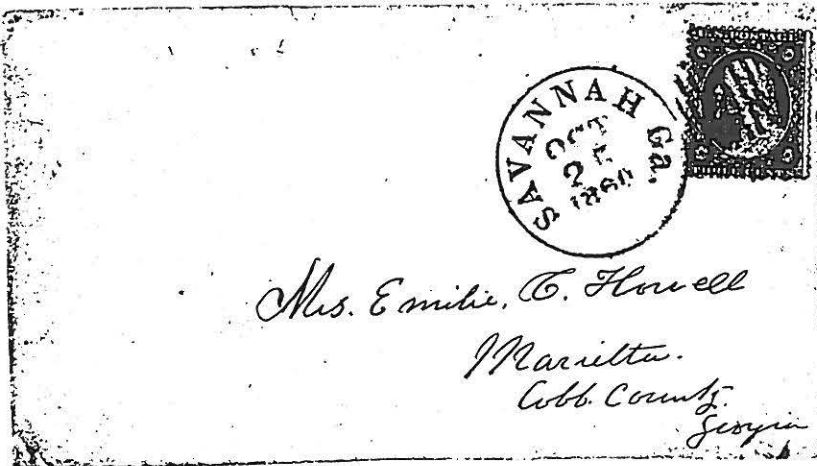 SAVANNAH Ga.
OCT
25
1860
Mrs. Emilie. C. Howell
Marietta.
Cobb. County.
Georgia